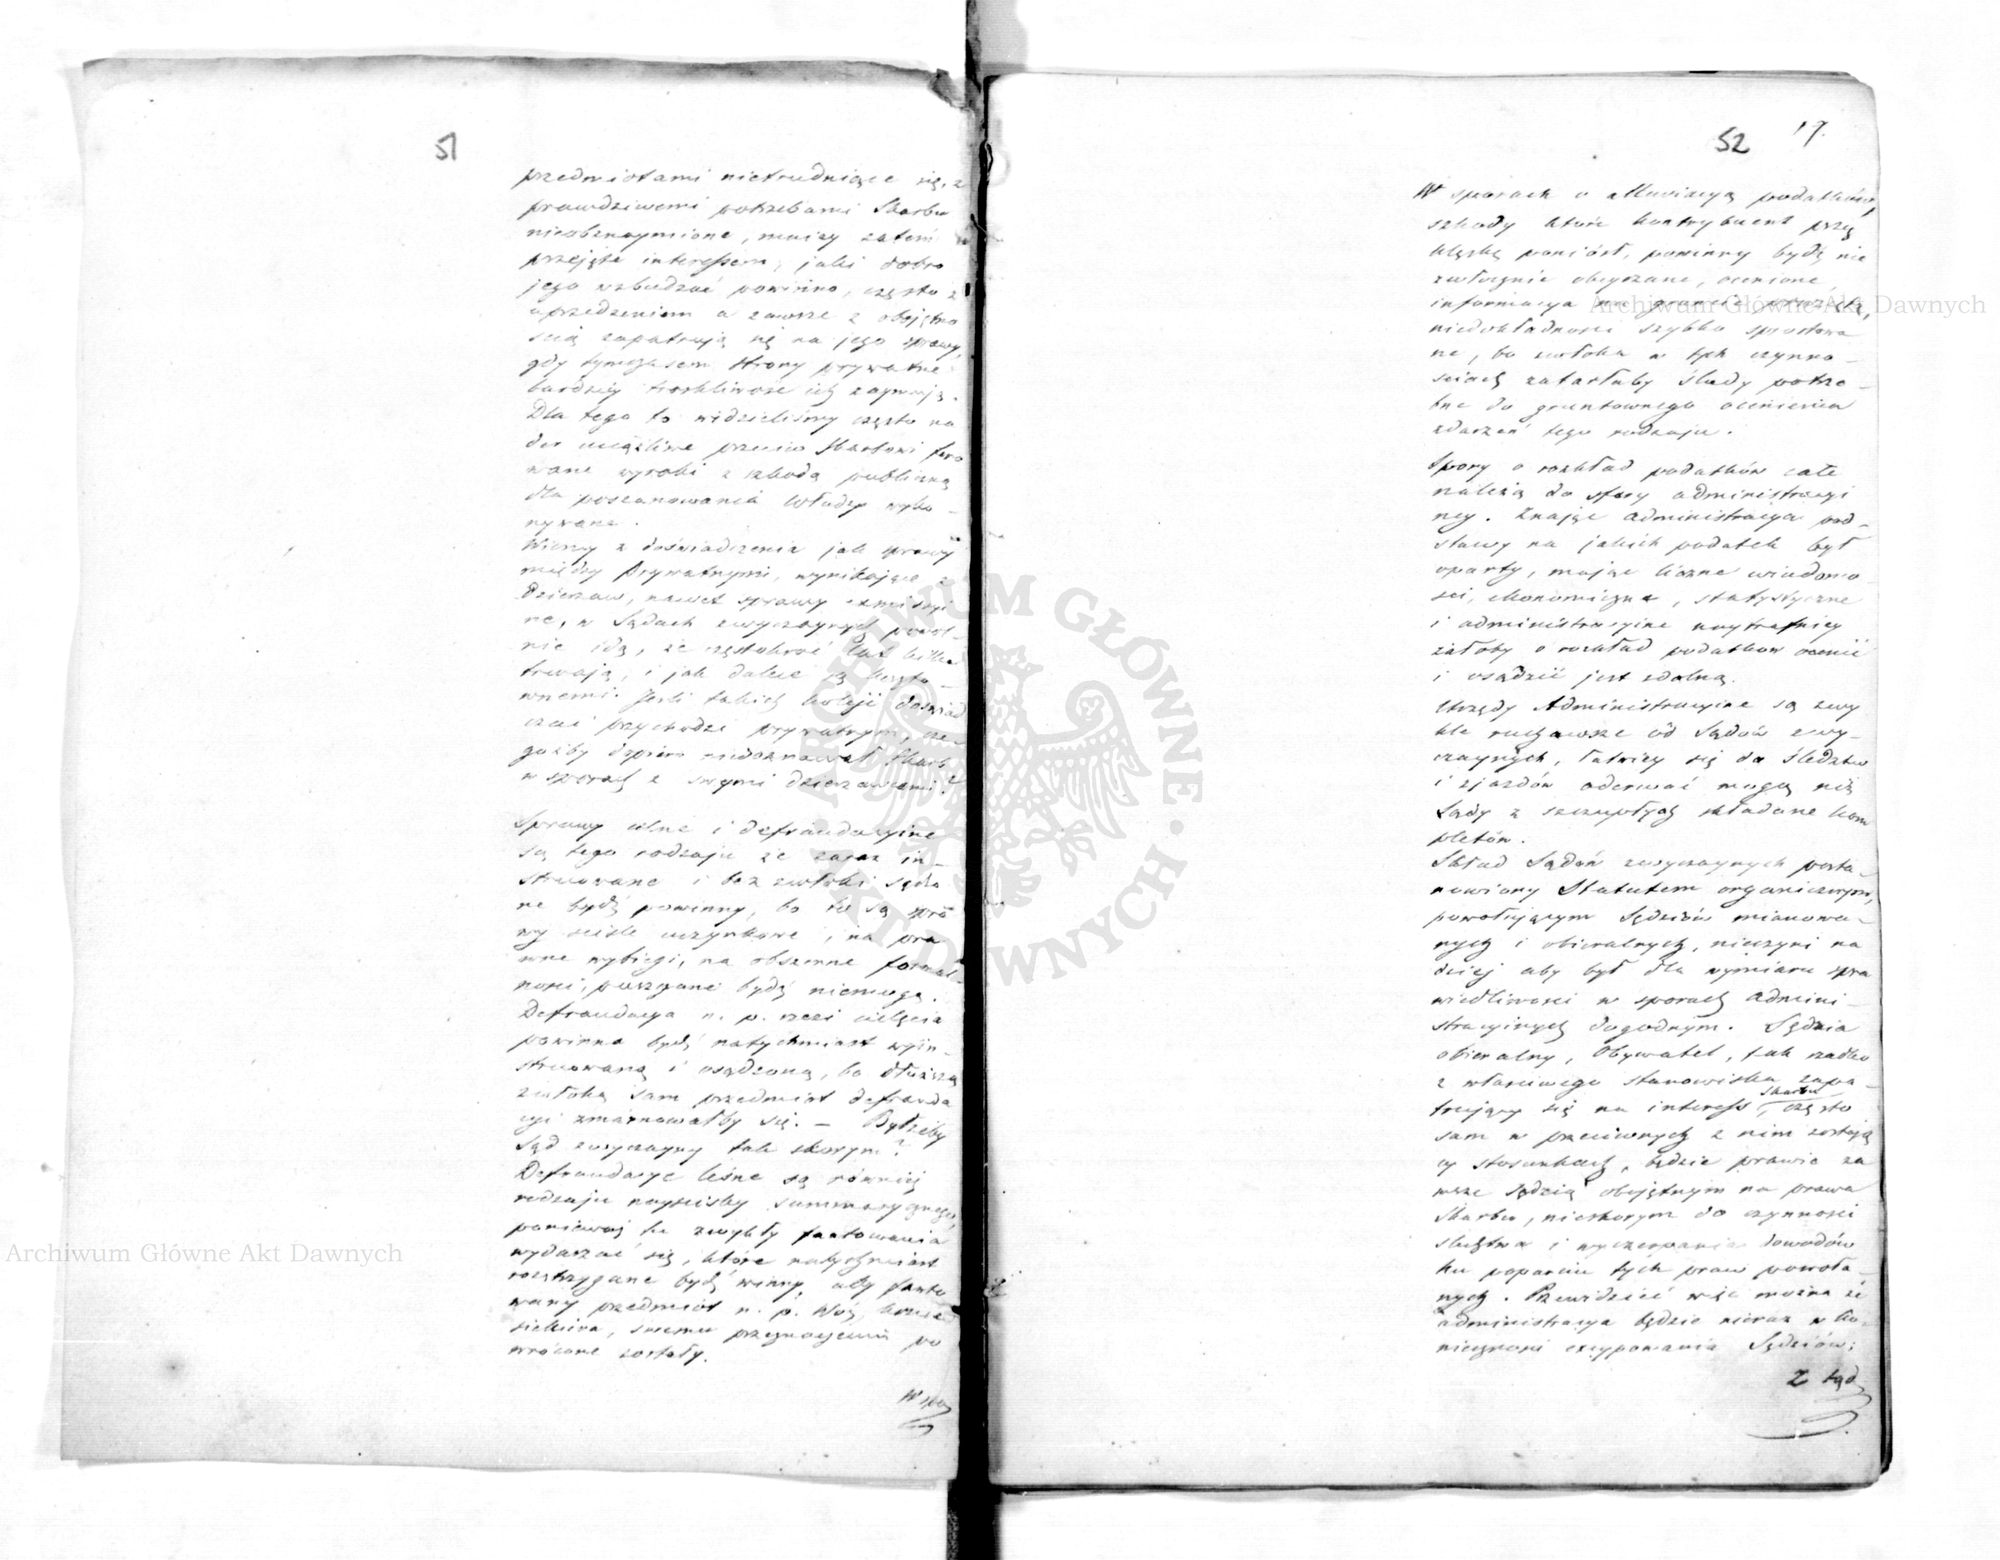 51
przedmiotami nietrudniące się, z
prawdziwemi potrzebami Skarbu
nieobznaymione, mniey zatem
przejęte interessem, jaki dobro
jego wzbudzać powinno, często z
uprzedzeniem a zawsze z obojętno
scią zapatrują się na jego sprawy,
gdy tymczasem strony prywatne
bardziey troskliwość ich zaymują.
Dla tego to widzieliśmy często na
der uciążliwe przeciw Skarbowi fero
wane wyroki z szkodą publiczną
dla poszanowania Władzy wyko-
nywane.
Wiemy z doświadczenia jak sprawy
między Prywatnymi, wynikające z
Dzierżaw, nawet sprawy exmissyi
ne, w Sądach zwyczaynych powol-
nie idą, że częstokroć lat kilka
trwają, i jak dalece są koszto-
wnemi. Jeśli takich kolei doświad
czać przychodzi prywatnym, cze-
gożby dopiero niedoznawał Skarb
w sporach z swymi dzierżawcami?
Sprawy celne i defraudacyine
są tego rodzaju że zaraz in-
struowane i bez zwłoki sądzo
ne bydź powinny, bo to są spra
wy ściśle uczynkowe, i na pra
wne wybiegi, na obszerne formal-
ności, puszczane bydź niemogą.
Defraudacya n. p. rzezi cielęcia
powinna bydź natychmiast wyin-
struowaną i osądzoną, bo dłuższą
zwłoką sam przedmiot defrauda
cyi zmarnowałby się. – Byłżeby
Sąd zwyczayny tak skorym?
Defraudacye leśne są równiéj
rodzaju nayściśley summarycznego,
ponieważ tu zwykły fantowania
wydarzać się, które natychmiast
rozstrzygane bydź winny, aby fanto
wany przedmiot n. p. Wóz, konie
siekiera, swemu przeznaczeniu po
wrócone zostały.
W spo
52
17.
W sporach o alleviacyą podatków,
szkody które kontrybuent przez
klęskę poniósł, powinny bydź nie
zwłocznie obeyrzane, ocenione,
informacya na gruncie
niedokładności szybko sprostowa
ne, bo zwłoka w tych czynno-
ściach zatarłaby ślady potrze-
bne do gruntownego ocenienia
zdarzeń tego rodzaju.
Spory o rozkład podatków całe
należą do sfery administracyi
ney. Znając administracya pod-
stawy na jakich podatek był
oparty, mając liczne wiadomo-
ści, ekonomiczne, statystyczne
i administracyine naytrafniey
żałoby o rozkład podatków ocenić
i osądzić jest zdolną.
Urzędy Administracyine są zwy
kle ruchawsze od Sądów zwy-
czaynych, łatwiey się do śledztw
i zjazdów oderwać mogą niż
Sądy z szczupłych składane kom
pletów.
Skład Sądów zwyczaynych posta-
nowiony Statutem organicznym,
powołującym Sędziów mianowa-
nych i obieralnych, nieczyni na
dziej aby był dla wymiaru spra
wiedliwości w sporach admini-
stracyinych dogodnym. Sędzia
obieralny, Obywatel, tak rzadko
z właściwego stanowiska zapa-
trujący się na interess Skarbu, często
sam w przeciwnych z nim zostają
cy stosunkach, będzie prawie za
wsze Sędzią obojętnym na prawa
Skarbu, nieskorym do czynności
śledztwa i wyczerpania dowodów
ku poparciu tych praw powoła-
nych. Przewidzieć więc można że
administracya będzie nieraz w ko-
nieczności excypowania Sędziów;
Z sąd